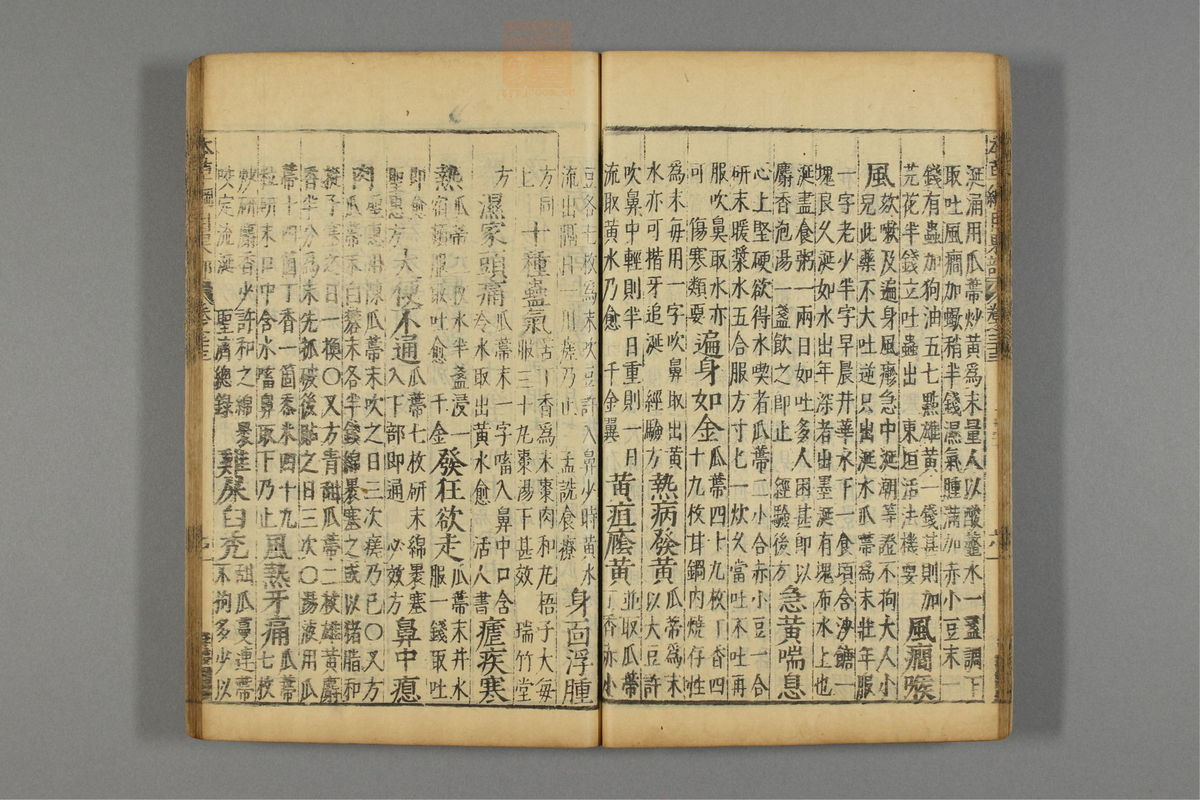 涎涌用瓜蒂炒黄為末量人以酸虀水一盞調下
取吐風癇加蠍稍半錢濕氣腫滿加赤小豆末一
錢有蟲加狗油五七點雄黄一錢甚則加
芫花半錢立吐蟲出 東垣活法機要 風癇喉
風欬嗽及遍身風𤺋急中涎潮等證不拘大人小
兒此藥不大吐逆只出涎水瓜蒂為末壯年服
一字老少半字早晨井華水下一食頃含沙餹一
塊良久涎如水出年深者出墨涎有塊布水上也
涎盡食粥一兩日如吐多人困甚即以
麝香泡湯一盞飲之即止 經驗後方 急黄喘息
心上堅硬欲得水喫者瓜蒂二小合赤小豆一合
研末暖漿水五合服方寸匕一炊久當吐不吐再
服吹鼻取水亦
可 傷寒類要 遍身如金瓜蒂四十九枚丁香四
十九枚甘鍋內燒存性
為末每用一字吹鼻取出黄
水亦可揩牙追涎 經驗方 熱病發黄瓜蒂為末
以大豆許
吹鼻中輕則半日重則一日
流取黄水乃愈 千金翼 黄疸癊黄並取瓜蒂
丁香赤小
豆各七枚為末吹豆許入鼻少時黄水
流出隔日一用瘥乃止 孟詵食療 身面浮腫
方同
上 十種蠱氣苦丁香為末棗肉和丸梧子大每
服三十丸棗湯下甚效 瑞竹堂
方 濕家頭痛瓜蒂末一字㗜入鼻中口含
冷水取出黄水愈 活人書 瘧疾寒
熱瓜蒂二枚水半盞浸一
宿頓服取吐愈 千金 發狂欲走瓜蒂末井水
服一錢取吐
即愈
聖惠方 大便不通瓜蒂七枚研末綿裹塞
入下部即通 必效方 鼻中瘜
肉聖惠用陳瓜蒂末吹之日三次瘥乃已〇又方
瓜蒂末白礬末各半錢綿裹塞之或以猪脂和
挺子塞之日一換〇又方青甜瓜蒂二枚雄黄麝
香半分為末先抓破後貼之日三次〇湯液用瓜
蒂十四箇丁香一箇黍米四十九
粒研末口中含水㗜鼻取下乃止 風熱牙痛瓜蒂
七枚
炒研麝香少許和之綿裹
咬定流涎 聖濟總錄 雞屎白禿甜瓜蔓連蒂
不拘多少以